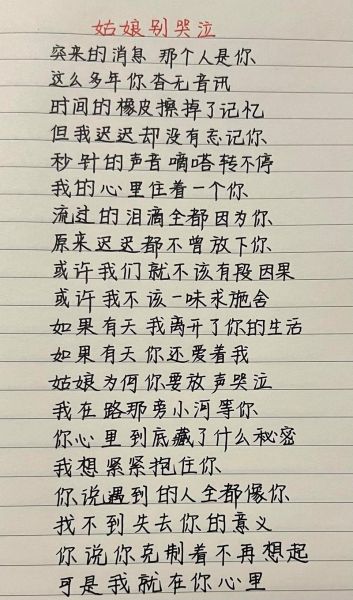 姑娘别哭泣
突来的消息 那个人是你
这么多年你杳无音讯
时间的橡皮擦掉了记忆
但我迟迟却没有忘记你
秒针的声音嘀嗒转不停
我的心里住着一个你
流过的泪滴全都因为你
原来迟迟都不曾放下你
或许我们就不该有段因果
或许我不该一味求施舍
如果有天我离开了你的生活
如果有天你还爱着我
姑娘为何你要放声哭泣
我在路那旁小河等你
你心里到底藏了什么秘密
我想紧紧抱住你
你说遇到的人全都像你
找不到失去你的意义
你说你克制着不再想起
可是我就在你心里